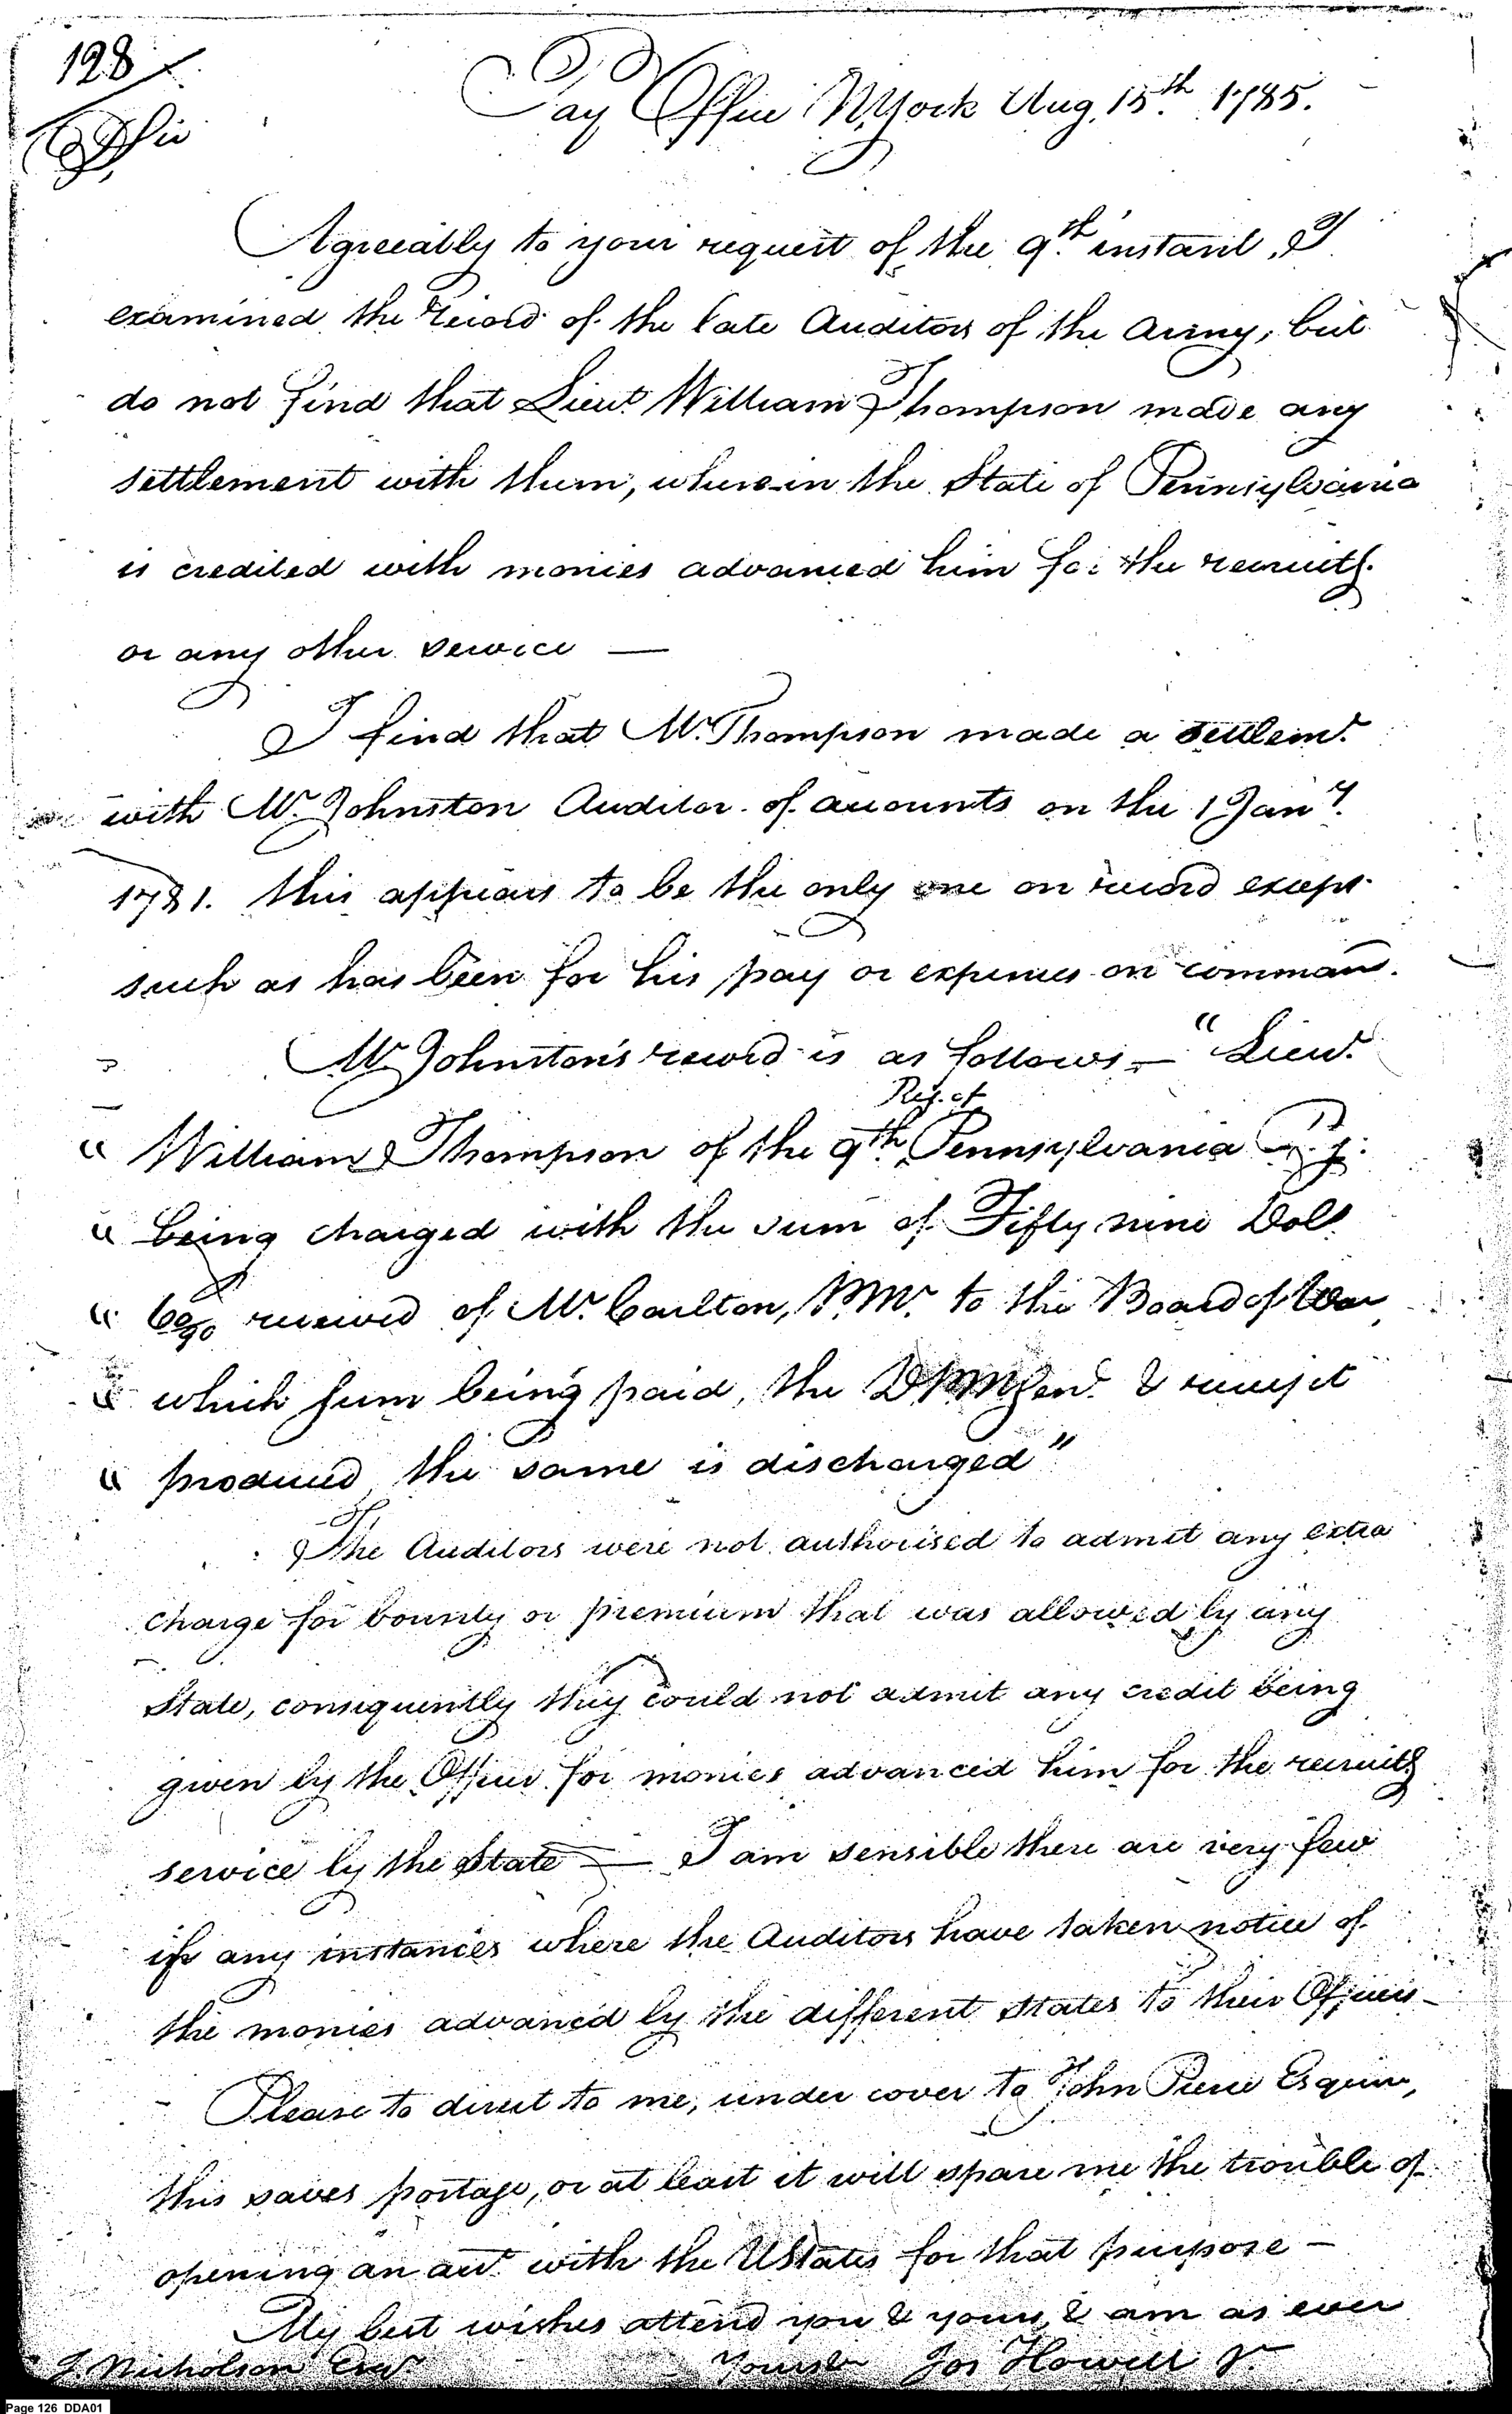 128
Pay Office NYork Aug. 15th 1785.
Agreeably to your request of the 9th instant, I
examined the record of the late Auditors of the Army, but
do not find that Lieut William Thompson made any
settlement with them, wherein the State of Pennsylvania
is credited with monies advanced him for the recruitg.
or any other service —
I find that Mr. Thompson made a settlemt.
with Mr. Johnston Auditor of accounts on the 1 Jany.
1781. this appears to be the only one on record except
such as has been for his pay or expences on command.
Mr Johnston's record is as follows — "Lieut.
Regt. of
" William Thompson of the 9th Pennsylvania
" being charged with the sum of Fifty nine Dolls
" 60/90 received of Mr. Carlton, PMr. to the Board of War
" which sum being paid, the DPMGen. & receipt
" produced the same is discharged"
The Auditors were not authorised to admit any extra
charge for bounty or premium that was allowed by any
State, consequently they could not admit any credit being
given by the Officer for monies advanced him for the recruitg
service by the State — I am sensible there are very few
if any instances where the Auditors have taken notice of
the monies advanced by the different States to their Officers —
Please to direct to me, under cover to John Pierce Esquire,
this saves postage, or at least it will spare me the trouble of
opening an acct. with the UStates for that purpose —
My best wishes attend you & yours, & am as ever
J. Nicholson Esqr Yours &c Jos Howell Jr.
Page 126 DDA01